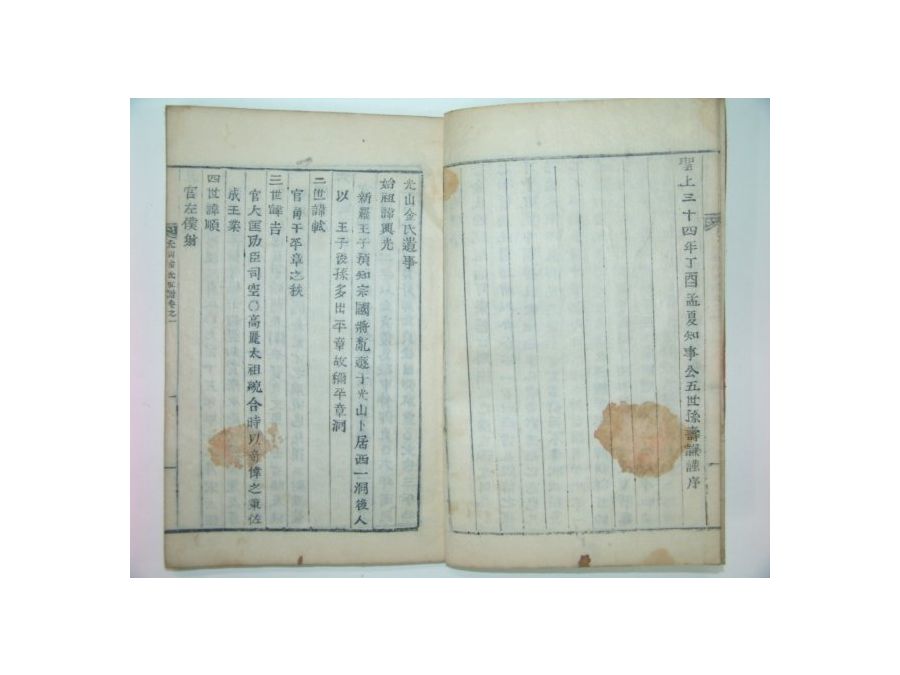 聖上三十四年丁酉孟夏知事公五世孫壽謹序
光山金氏遺事
始祖諱興光
新羅王子預知宗國將亂遯于光山卜居西一洞後人
以 王子後孫多出平章故稱平章洞
二世諱軾
官角干平章之秩
三世諱吉
官大匡功臣司空〇高麗太祖統合時以奇偉之兼佐
成王業
四世諱順
官左僕射
光山金氏譜卷之一